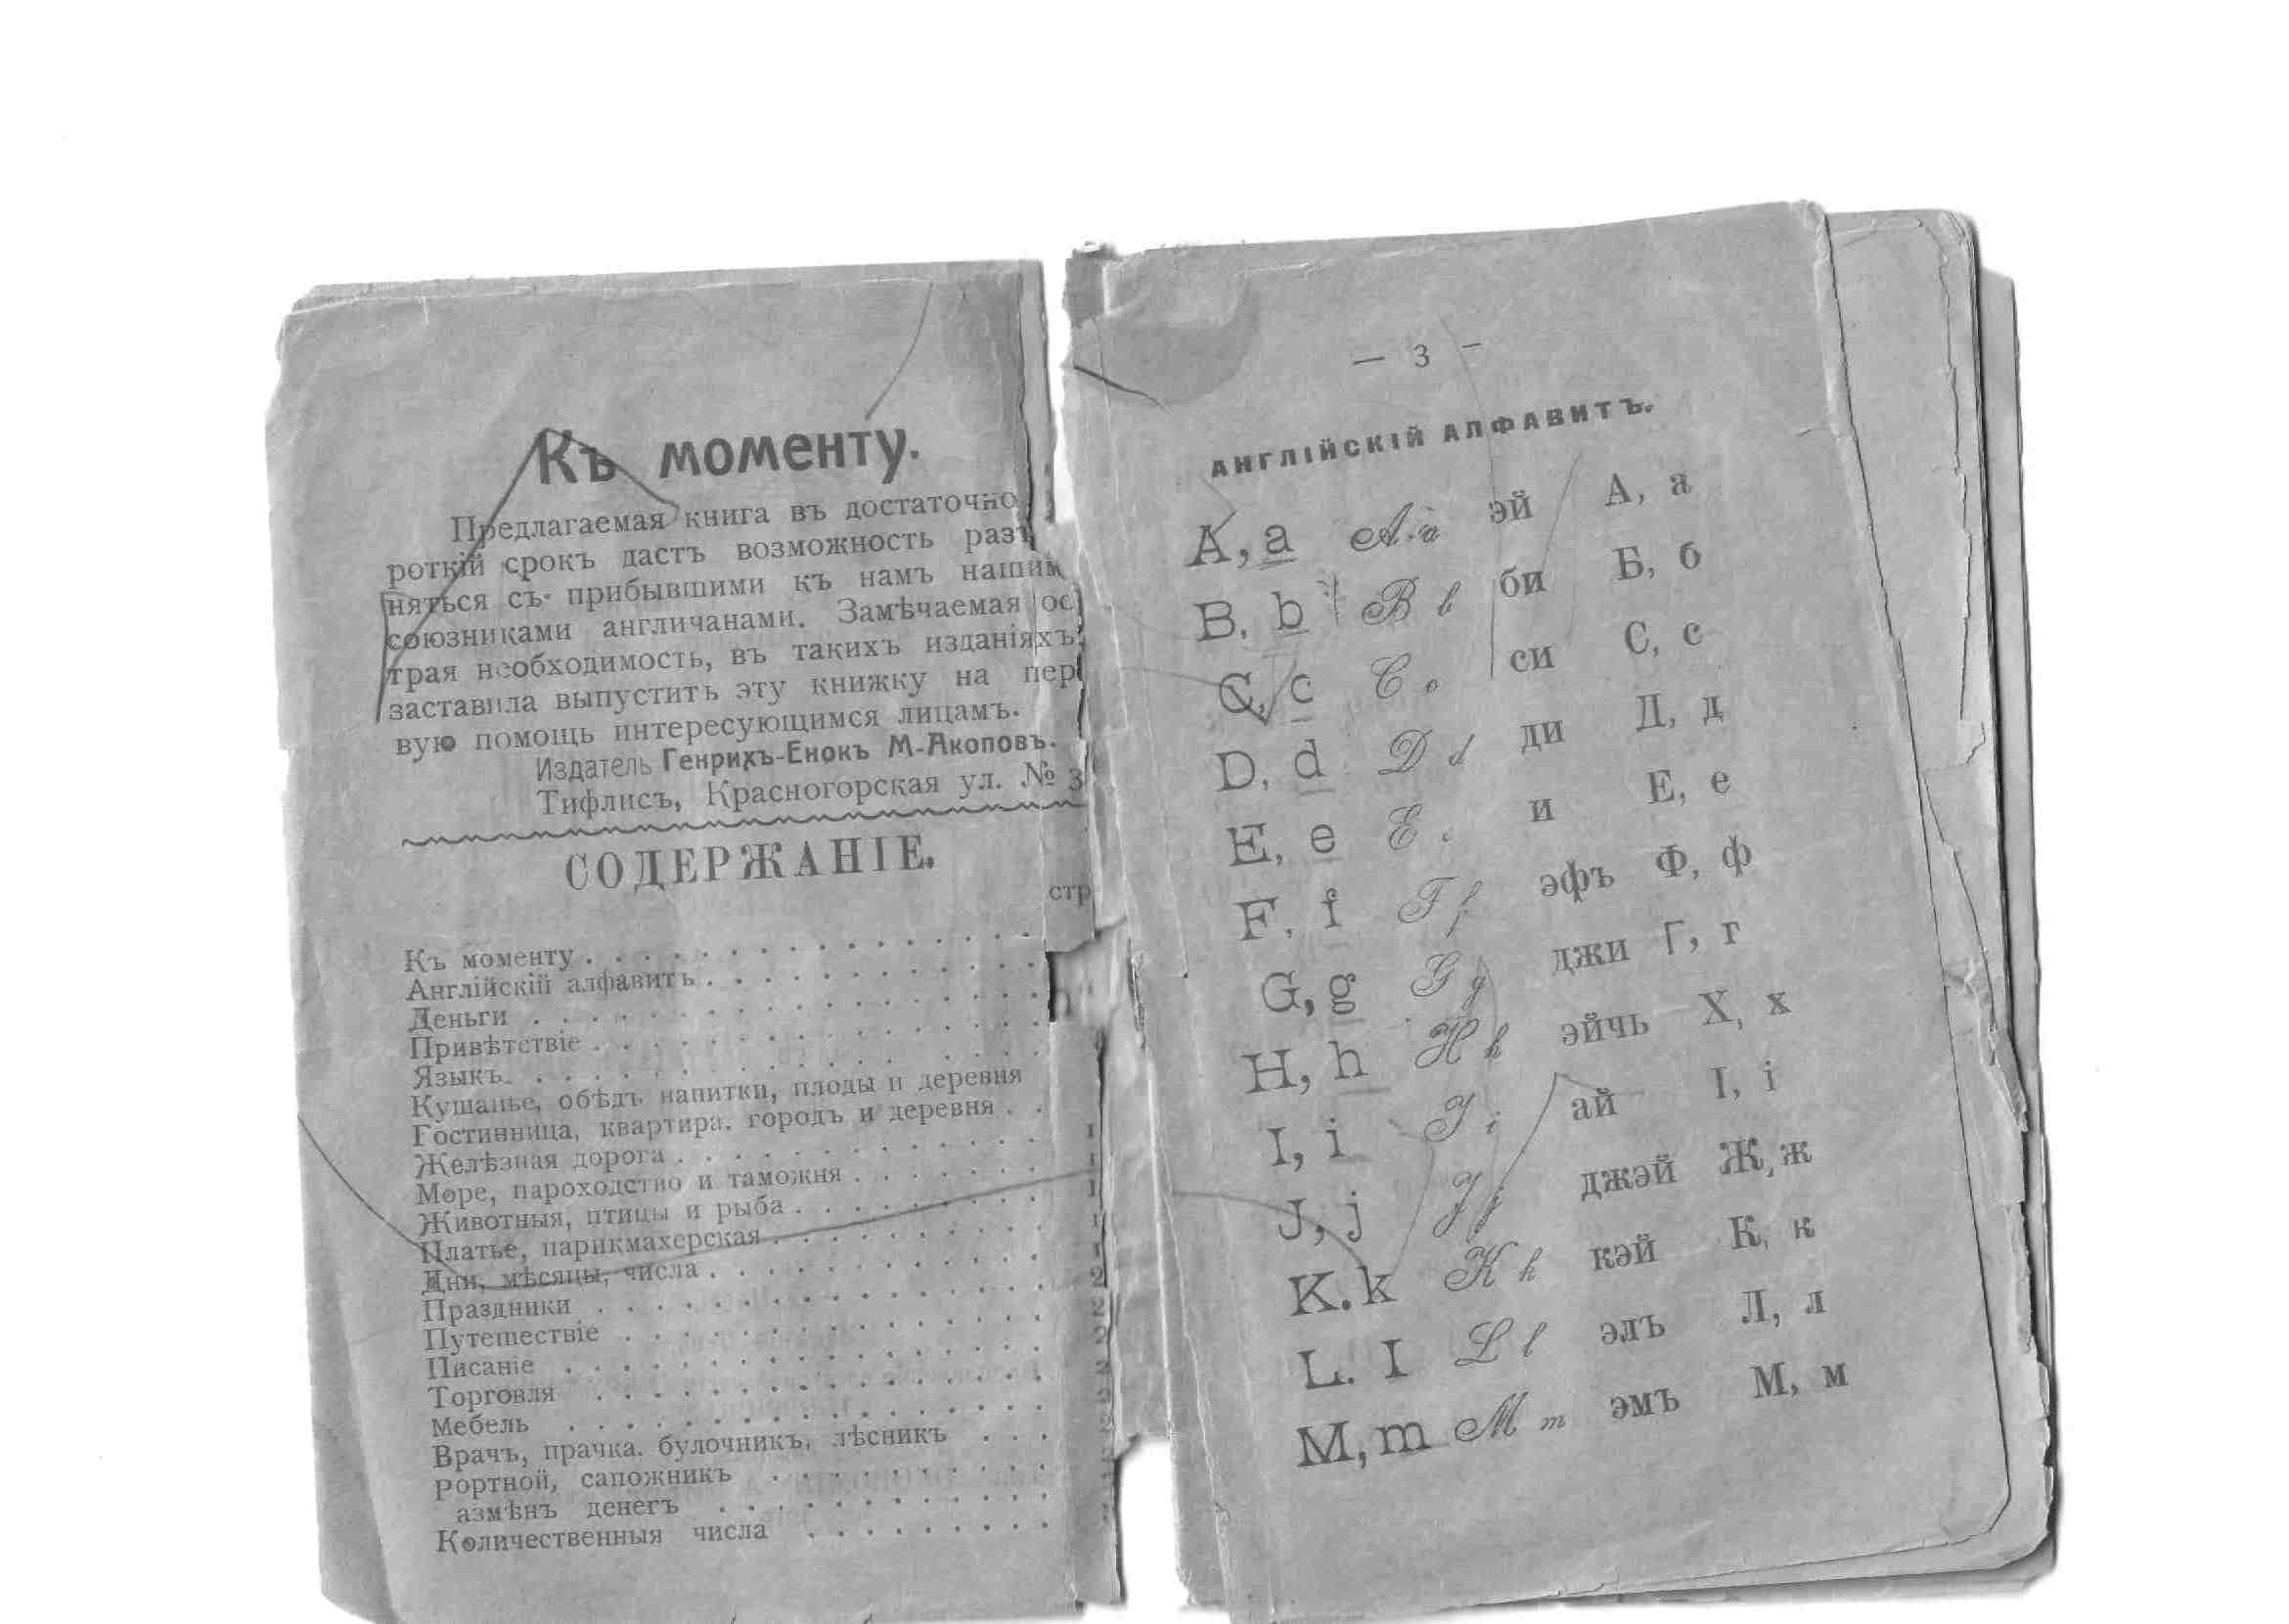 Къ моменту.
Предлагаемая книга въ достаточно
роткій срокъ дастъ возможность разъ
няться съ прибывшими къ намъ нашим
союзниками англичанами. Замѣчаемая ос
трая необходимость, въ такихъ изданіяхъ,
заставила выпустить эту книжку на пер
вую помощь интересующимся лицамъ.
Издатель Генрихъ-Енокъ М-Акоповъ.
Тифлисъ, Красногорская ул. № 3
СОДЕРЖАНІЕ.
стр
Къ моменту
Англійскій алфавитъ
Деньги
Привѣтствіе
Языкъ
Кушанье, обѣдъ напитки, плоды и деревня
Гостинница, квартира. городъ и деревня
Желѣзная дорога
Море, пароходство и таможня
Животныя, птицы и рыба
Платье, парикмахерская
Дни, мѣсяцы, числа
Праздники
Путешествіе
Писаніе
Торговля
Мебель
Врачъ, прачка. булочникъ, лѣсникъ
рортной, сапожникъ
азмѣнъ денегъ
Количественныя числа
— 3 —
АНГЛІЙСКІЙ АЛФАВИТЪ.
A, a A a эй А, а
B, b B b би Б, б
C, c C c си С, с
D, d D d ди Д, д
E, e E e и Е, е
F, f F f эфъ Ф, ф
G, g G g джи Г, г
H, h H h эйчь Х, х
I, i I i ай І, і
J, j J j джэй Ж, ж
K. k K k кэй К, к
L. I L l элъ Л, л
M, m M m эмъ М, м